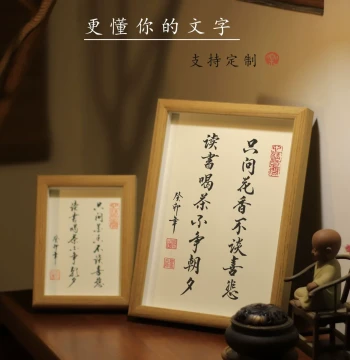 更懂你的文字
支持定制
只问花香不谈喜悲
读书喝茶不争朝夕
癸卯年
只问花香不谈喜悲
读书喝茶不争朝夕
癸卯年